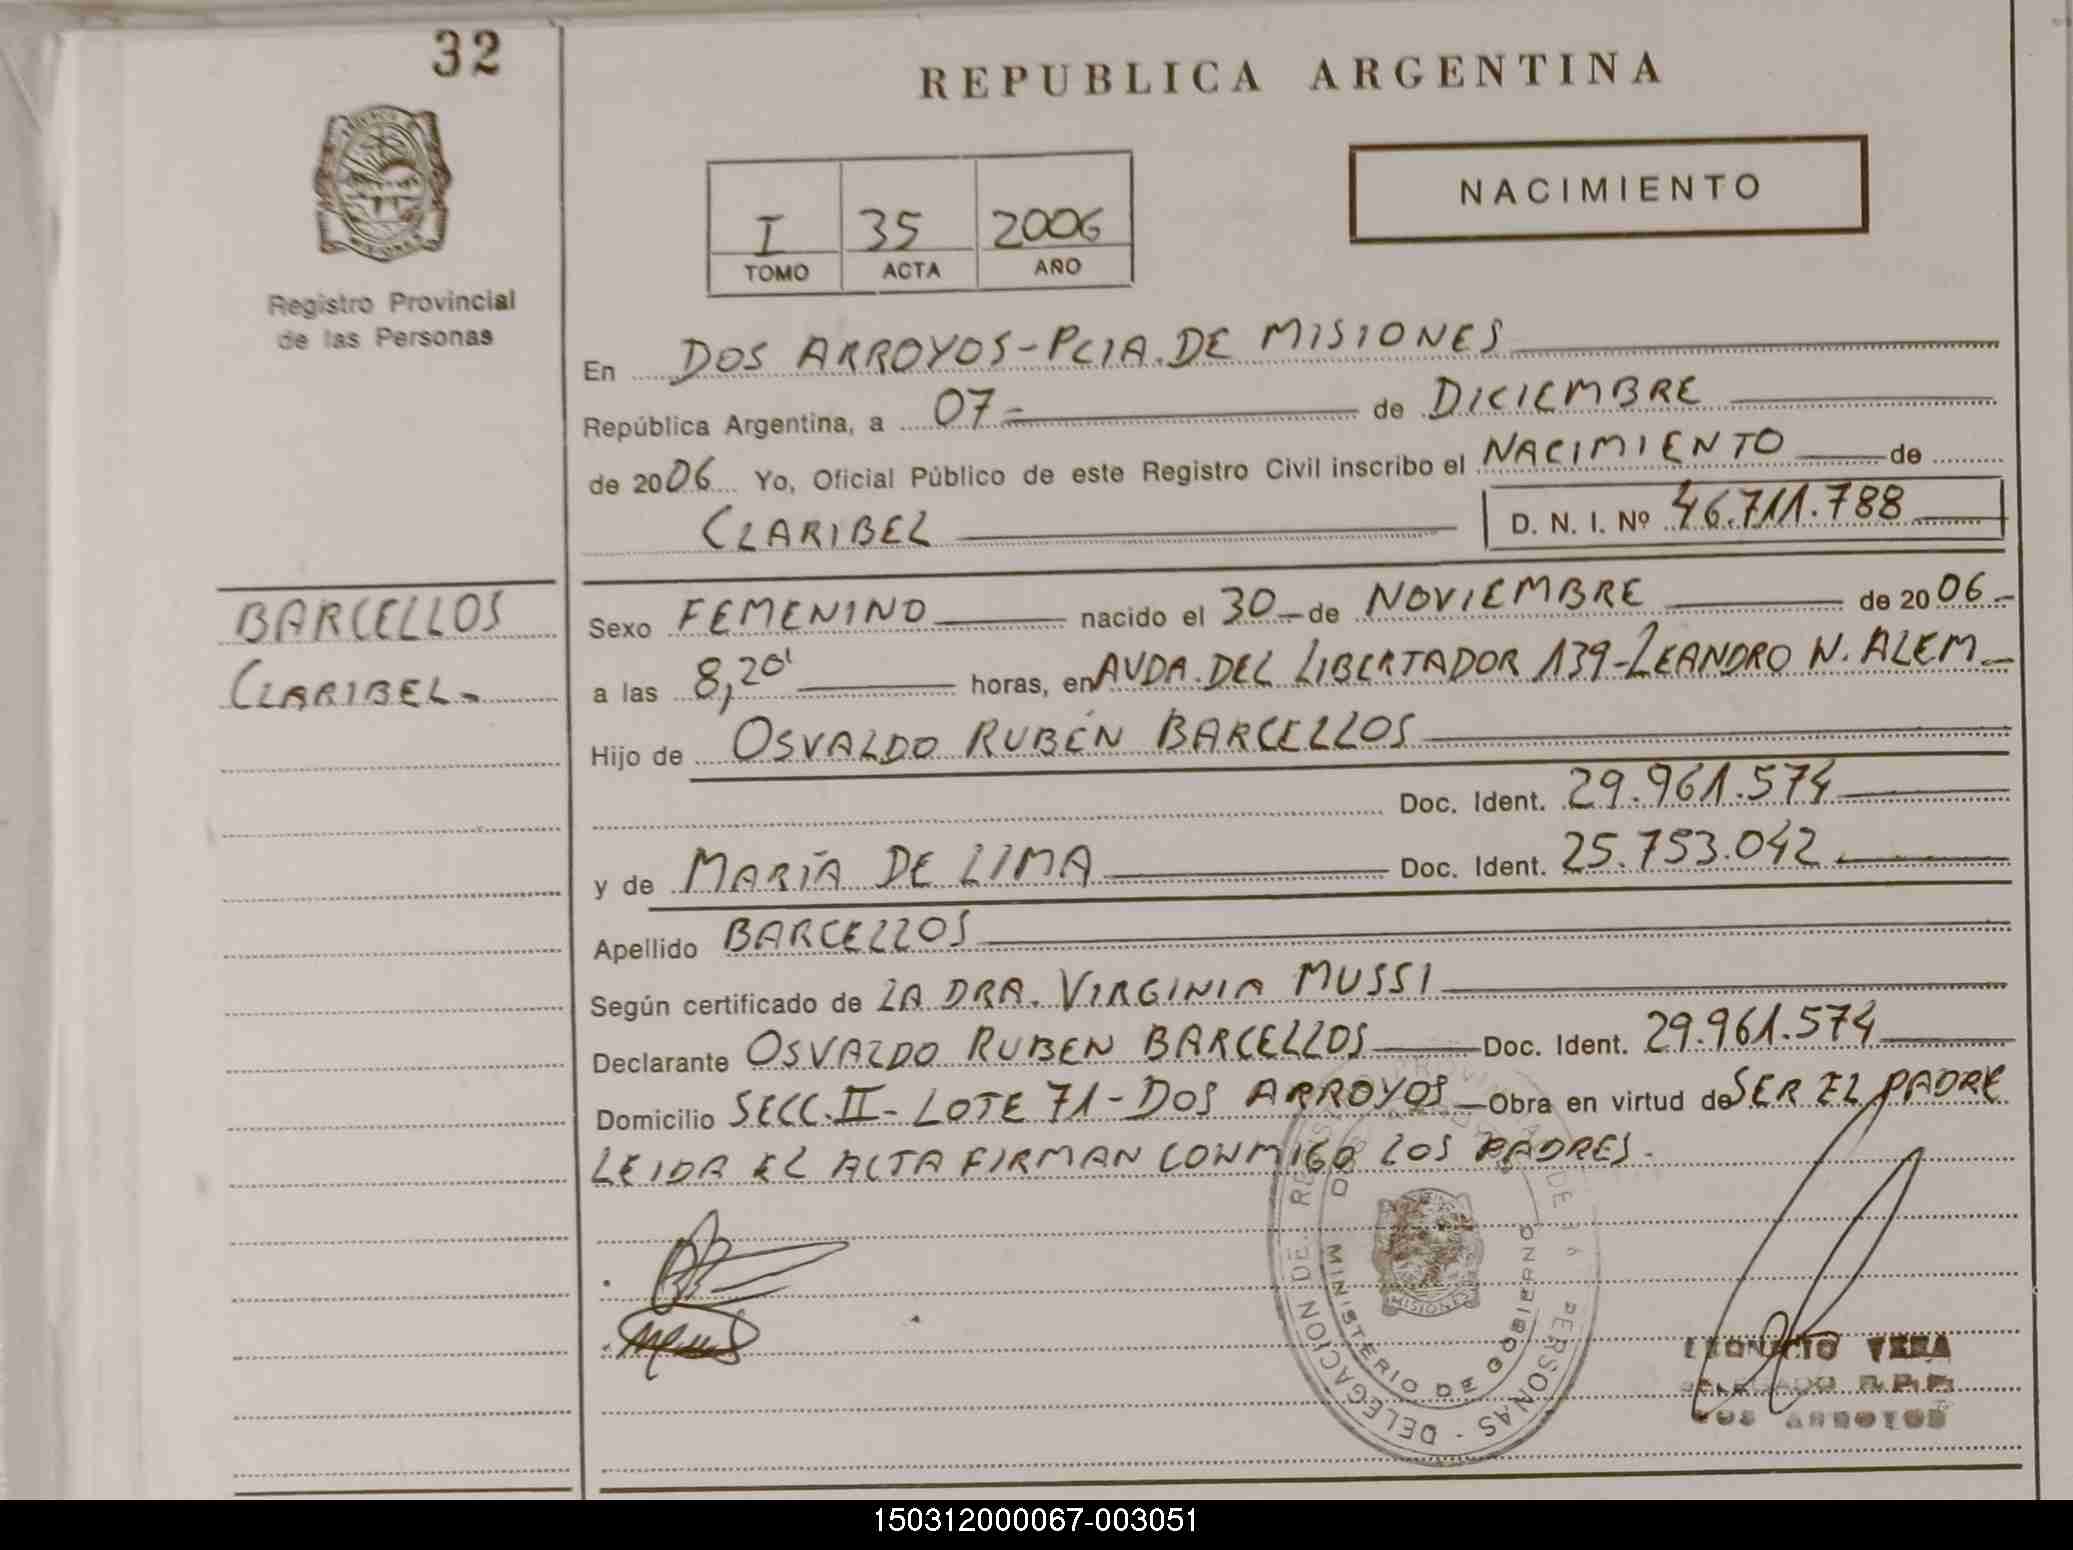 32
REPUBLICA ARGENTINA
NACIMIENTO
I 35 2006
TOMO ACTA AÑO
Registro Provincial
de las Personas
En DOS ARROYOS-PCIA. DE MISIONES
República Argentina, a 07- de DICIEMBRE
de 2006 Yo, Oficial Público de este Registro Civil inscribo el NACIMIENTO de
CLARIBEL D. N. I. Nº 46.711.788
BARCELLOS
CLARIBEL-
Sexo FEMENINO nacido el 30-de NOVIEMBRE de 2006-
a las 8,20' horas, en AVDA. DEL LIBERTADOR 139-LEANDRO N. ALEM-
Hijo de OSVALDO RUBÉN BARCELLOS
Doc. Ident. 29.961.574
y de MARÍA DE LIMA Doc. Ident. 25.753.042
Apellido BARCELLOS
Según certificado de LA DRA. VIRGINIA MUSSI
Declarante OSVALDO RUBEN BARCELLOS Doc. Ident. 29.961.574
Domicilio SECC. II- LOTE 71-DOS ARROYOS-Obra en virtud de SER EL PADRE
LEIDA EL ACTA FIRMAN CONMIGO LOS PADRES.
DELEGACION DE REGISTRO PROVINCIAL DE LAS PERSONAS -
DOS ARROYOS
MINISTERIO DE GOBIERNO
MISIONES
VERA
DELEGADO R.P.P.
DOS ARROYOS
150312000067-003051